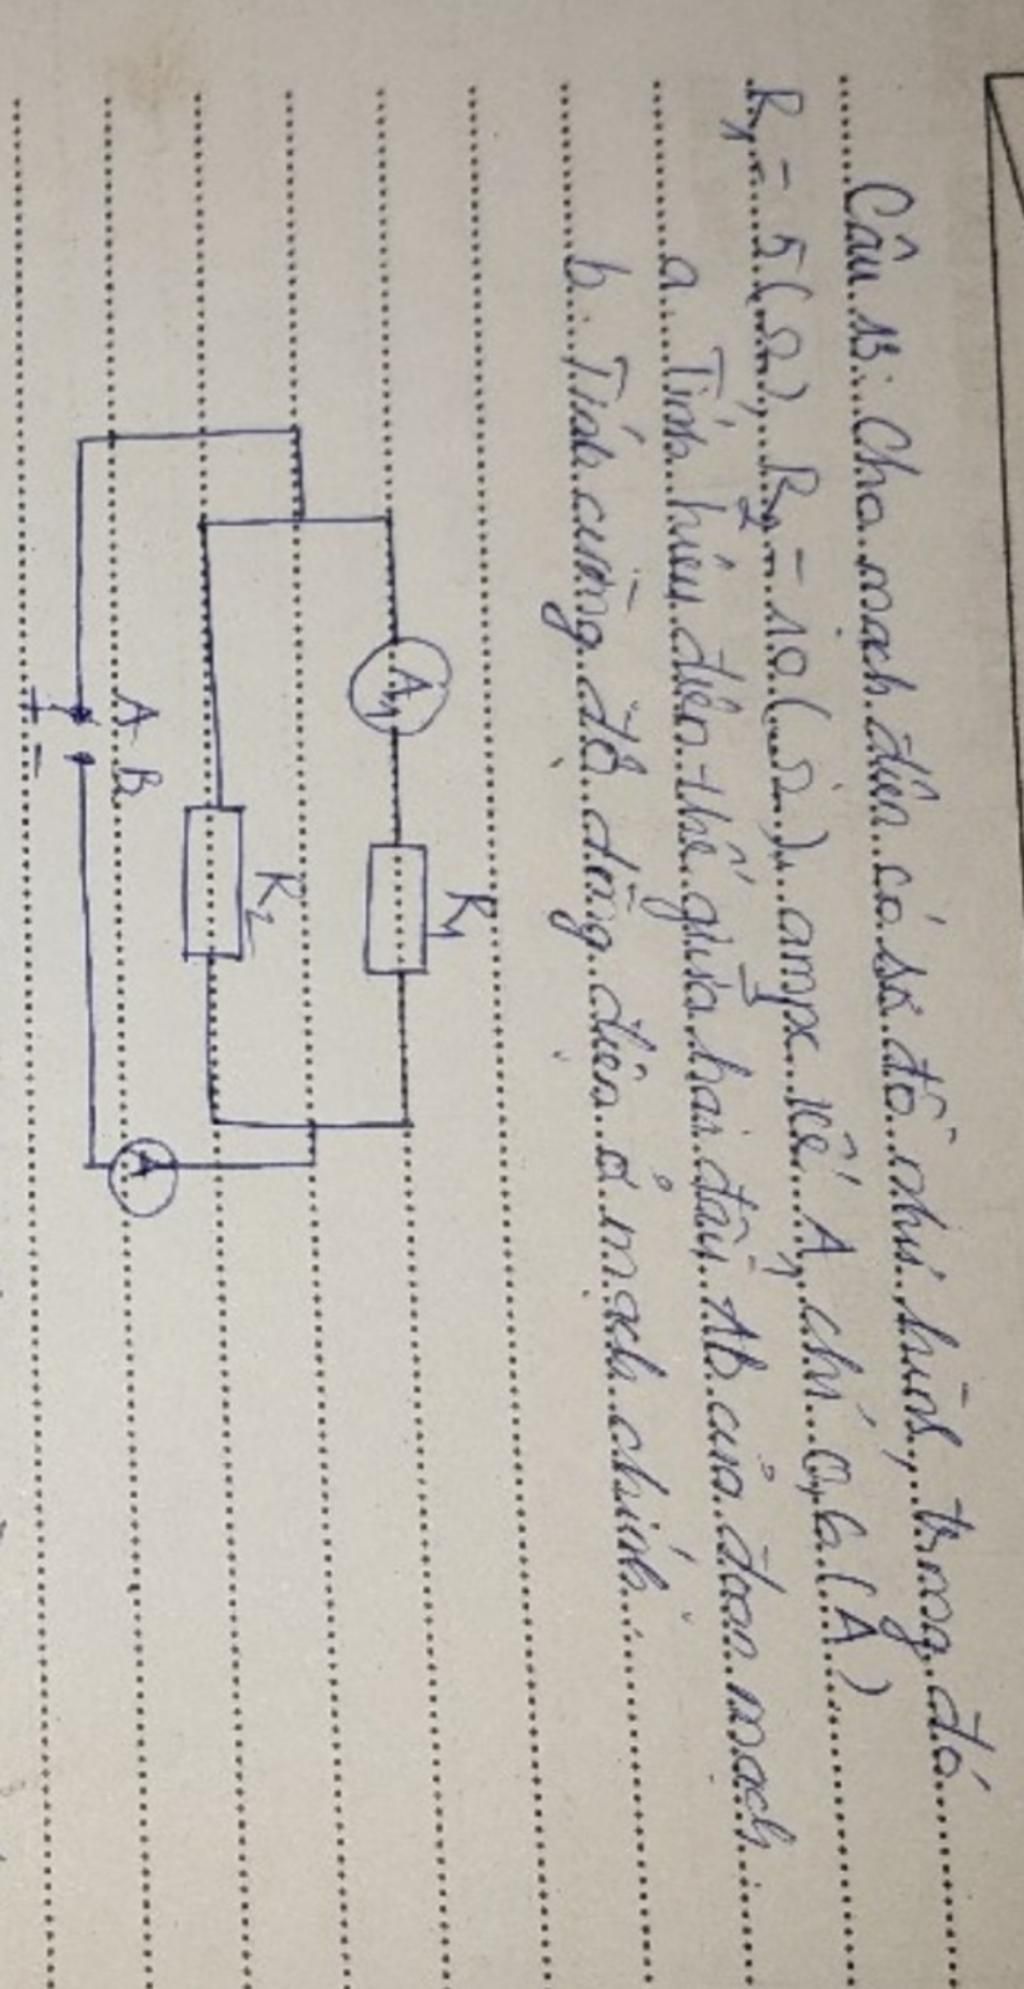 Câu 13: Cho mạch điện có sơ đồ như hình, trong đó
R₁ = 5 (Ω), R₂ = 10 (Ω), ampx kế A₁ chỉ 0,6 (A)
a. Tính hiệu điện thế giữa hai đầu AB của đoạn mạch
b. Tính cường độ dòng điện ở mạch chính
R₁
A₁
R₂
A B
+ -
A